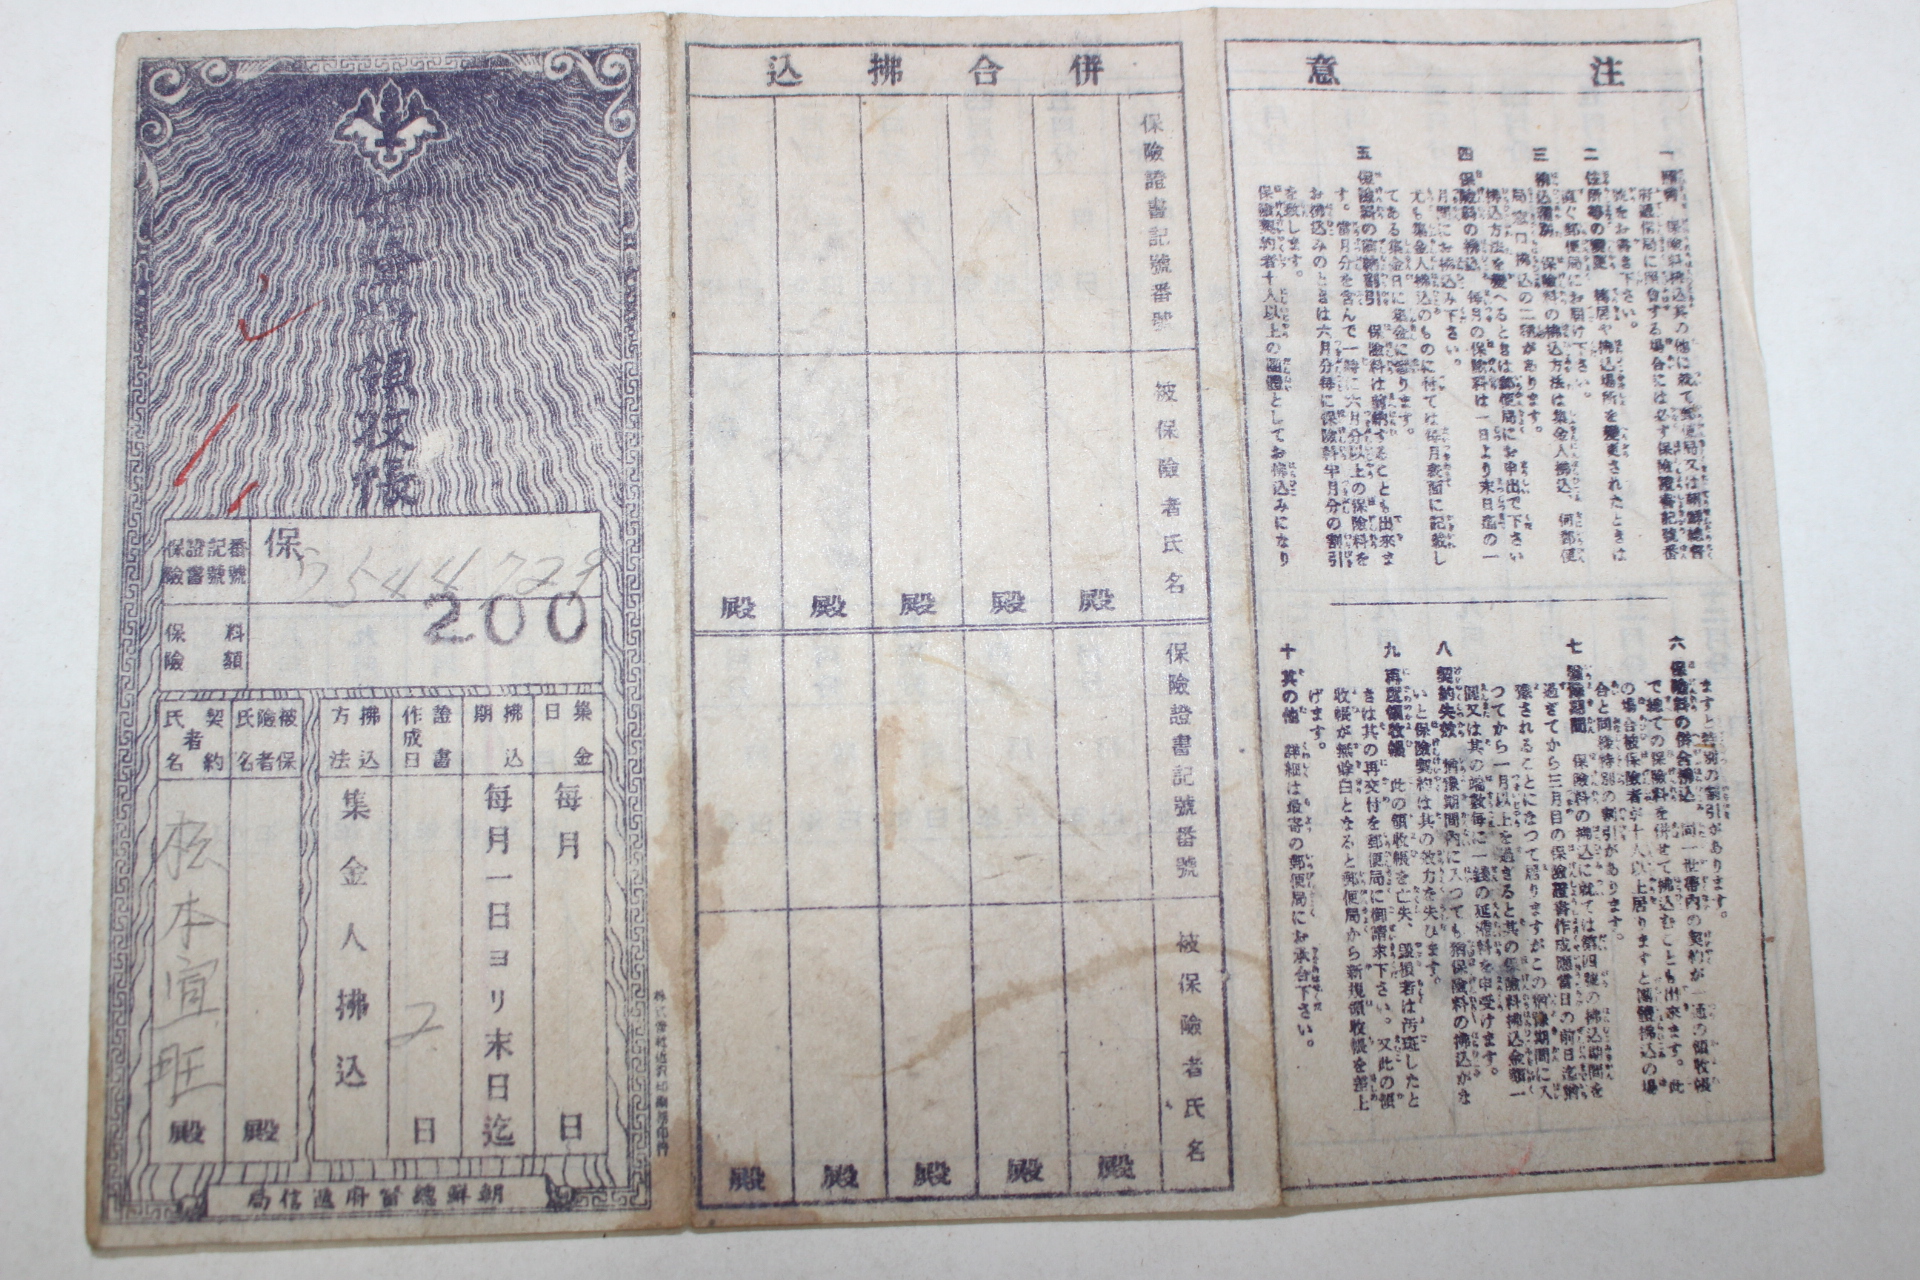 保險料領收帳
保險證書記號番號
保
ろ 5444729
保險料額
200
契約者氏名
松本宜旺
殿
被保險者氏名
殿
拂込方法
集金人拂込
證書作成日
2
日
拂込期
每月一日ヨリ末日迄
集金日
每月
日
朝鮮總督府遞信局
併合拂込
保險證書記號番號
被保險者氏名
殿
殿
殿
殿
殿
保險證書記號番號
被保險者氏名
殿
殿
殿
殿
殿
注意
一 照會 保險料拂込其の他に就て郵便局又は朝鮮總督
府遞信局に照會する場合には必ず保險證書記號番
號をお書き下さい。
二 住所等の變更 轉居や拂込場所を變更されたときは
直ぐ郵便局にお屆け下さい。
三 拂込種別 保險料の拂込方法は集金人拂込、何郵便
局窓口拂込の二種があります。
拂込方法を變へるときは郵便局にお申出で下さい
四 保險料の拂込 每月の保險料は一日より末日迄の一
月間にお拂込み下さい。
尤も集金人拂込のものに付ては每月表面に記載し
てある集金日に集金に參ります。
五 保險料の前納割引 保險料は前納することも出來ま
す。當月分を含んで一時に六月分以上の保險料を
お拂込みのときは六月分每に保險料半月分の割引
を致します。
保險契約者十人以上の團體としてお拂込みになり
ますと特別の割引があります。
六 保險料の併合拂込 同一世帶內の契約が一通の領收帳
で總ての保險料を併せて拂込むことも出來ます。此
の場合被保險者が十人以上居りますと團體拂込の場
合と同樣特別の割引があります。
七 猶豫期間 保險料の拂込に就ては第四號の拂込期間を
過ぎてから三月目の保險證書作成應當日の前日迄猶
豫されることになつて居りますがこの猶豫期間に入
つてから一月以上を過ぎると其の保險料拂込金額一
圓又は其の端數每に一錢の延滯料を申受けます。
八 契約失效 猶豫期間內に入つても猶保險料の拂込がな
いと保險契約は其の效力を失ひます。
九 再度領收帳 此の領收帳を亡失、毀損若は汚斑したと
きは其の再交付を郵便局に御請求下さい。又此の領
收帳が無餘白となると郵便局から新規領收帳を差上
げます。
十 其の他 詳細は最寄の郵便局にお承合下さい。